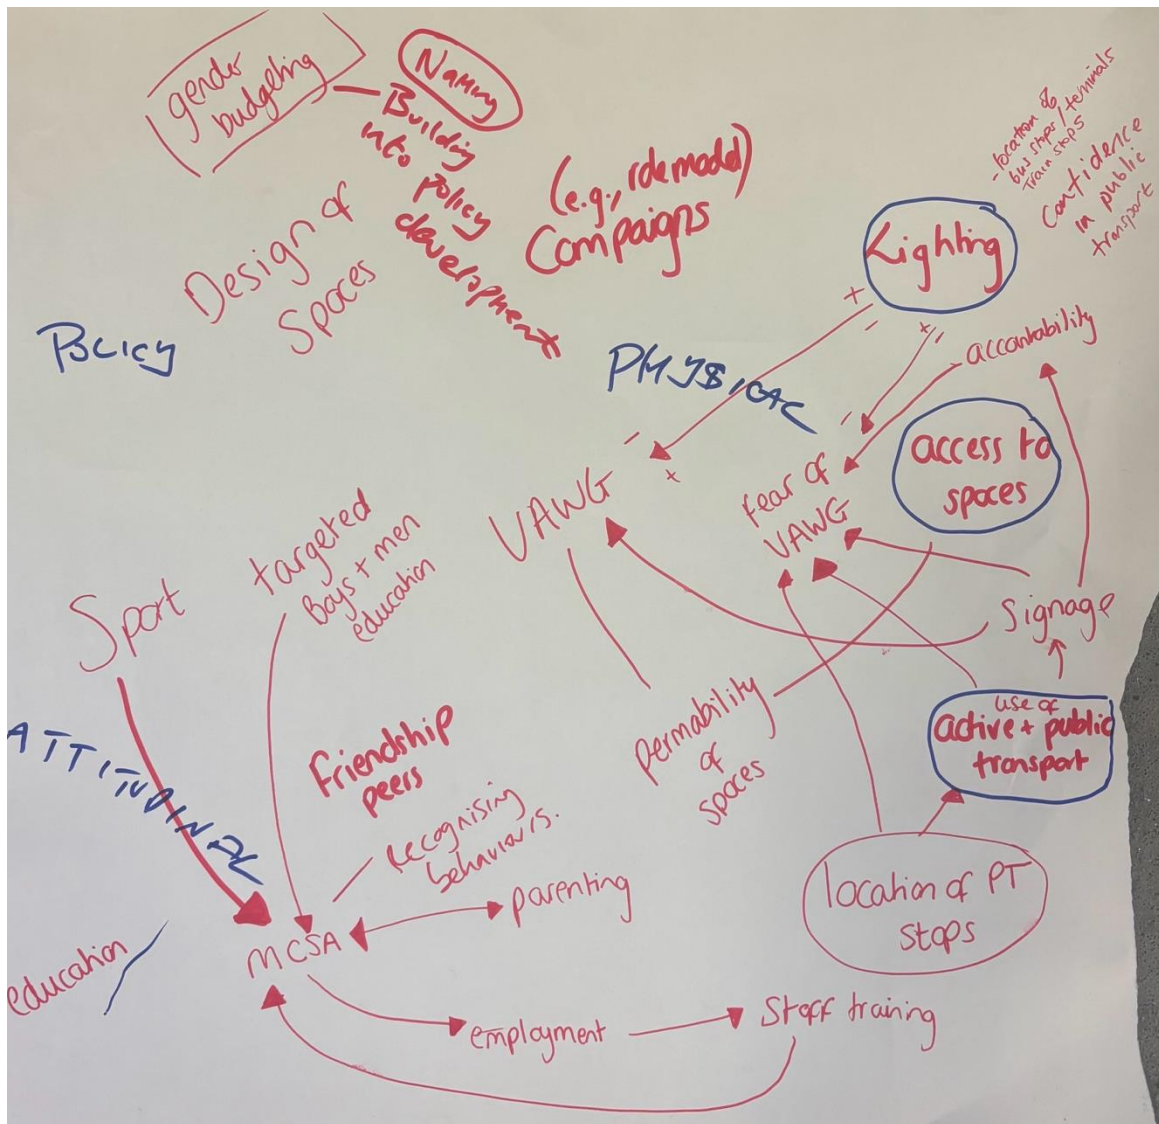 gender
budgeting
Naming
Building
into policy
development
(e.g., role model)
Campaigns
-location of
bus stops/terminals
Train stops
Confidence
in public
transport
Design of
Spaces
Lighting
+
-
+
-
POLICY
PHYSICAL
accountability
-
+
-
access to
spaces
VAWG
fear of
VAWG
targeted
Boys + men
education
Sport
Signage
ATTITUDINAL
Friendship
peers
permability
of
spaces
use of
active + public
transport
recognising
behaviours.
parenting
location of PT
stops
MCSA
education
employment
Staff training